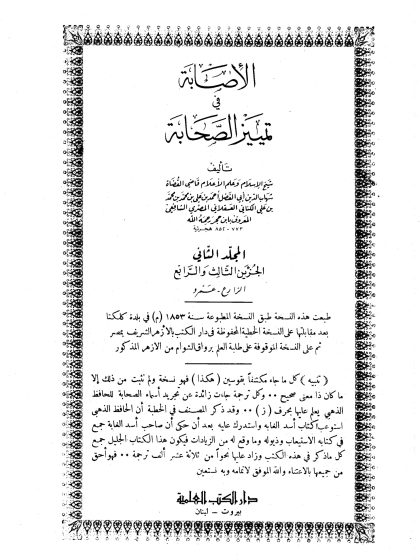 الإصابة
في
تمييز الصحابة
تأليف
شيخ الإسلام وعلم الأعلام قاضي القضاة
شهاب الدين أبي الفضل أحمد بن علي بن محمد بن محمد
بن علي الكناني العسقلاني المصري الشافعي
المعروف بابن حجر رحمه الله
٧٧٣ - ٨٥٢ هجرية
المجلد الثاني
الجزءين الثالث والرابع
الزارع - عمرو
طبعت هذه النسخة طبق النسخة المطبوعة سنة ١٨٥٣ (م) في بلدة كلكتا
بعد مقابلتها على النسخة الخطية المحفوظة في دار الكتب بالأزهر الشريف بمصر
ثم على النسخة الموقوفة على طلبة العلم برواق الشوام من الأزهر المذكور
(تنبيه) كل ما جاء مكتنفاً بقوسين (هكذا) فهو نسخة ولم نثبت من ذلك إلا
ما كان ذا معنى صحيح ٠٠ وكل ترجمة جاءت زائدة عن تجريد أسماء الصحابة للحافظ
الذهبي يعلم عليها بحرف (ز) ٠٠ وقد ذكر المصنف في الخطبة أن الحافظ الذهبي
استوعب كتاب أسد الغابه واستدرك عليه بعد أن حكى أن صاحب أسد الغابة جمع
في كتابه الاستيعاب وذيوله وما وقع له من الزيادات فيكون هذا الكتاب الجليل جمع
كل ما ذكر في هذه الكتب وزاد عليها نحواً من ثلاثة عشر ألف ترجمة ٠٠ فهو أحق
من جميعها بالاعتناء والله الموفق لاتمامه وبه نستعين
دار الكتب العلمية
بيروت - لبنان